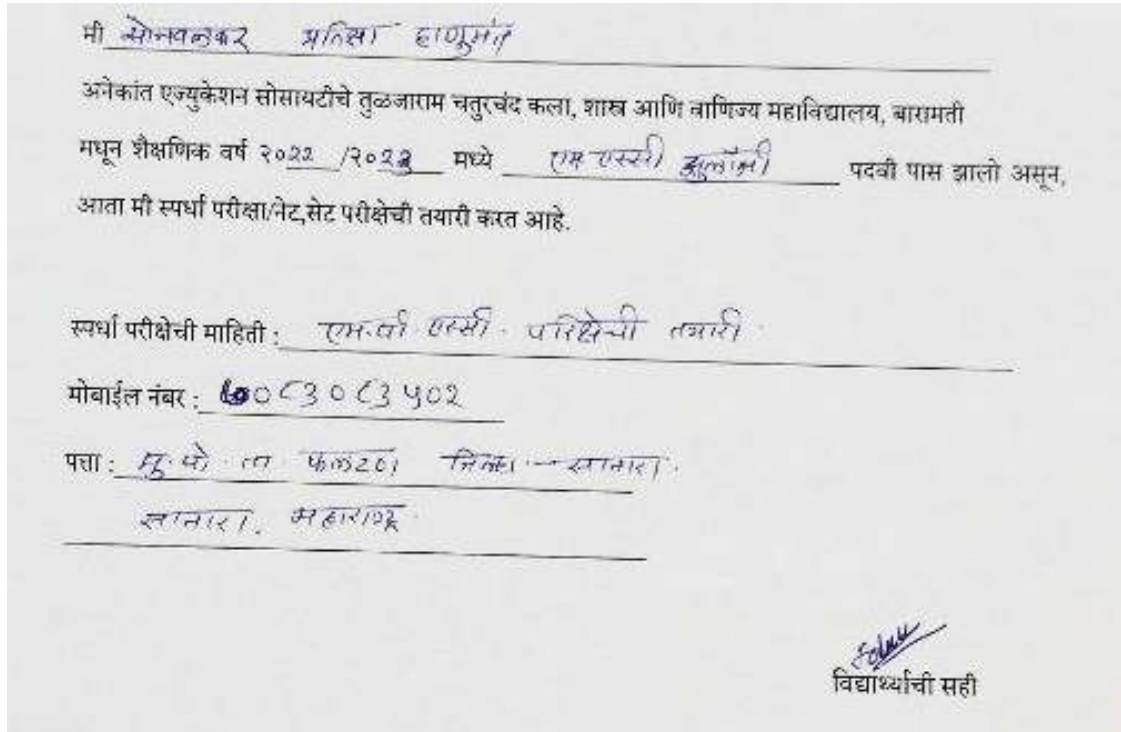 मी सोनवलकर प्रतिक्षा हाणुमंत
अनेकांत एज्युकेशन सोसायटीचे तुळजाराम चतुरचंद कला, शास्त्र आणि वाणिज्य महाविद्यालय, बारामती
मधून शैक्षणिक वर्ष २०२२ /२०२३ मध्ये एम एस्सी झुलॉजी पदवी पास झालो असून,
आता मी स्पर्धा परीक्षा/नेट,सेट परीक्षेची तयारी करत आहे.
स्पर्धा परीक्षेची माहिती : एम.पी एस्सी. परिक्षेची तयारी.
मोबाईल नंबर :
पत्ता : मु. पो. ता. फलटण जिल्हा - सातारा.
सातारा. महाराष्ट्र.
विद्यार्थ्याची सही